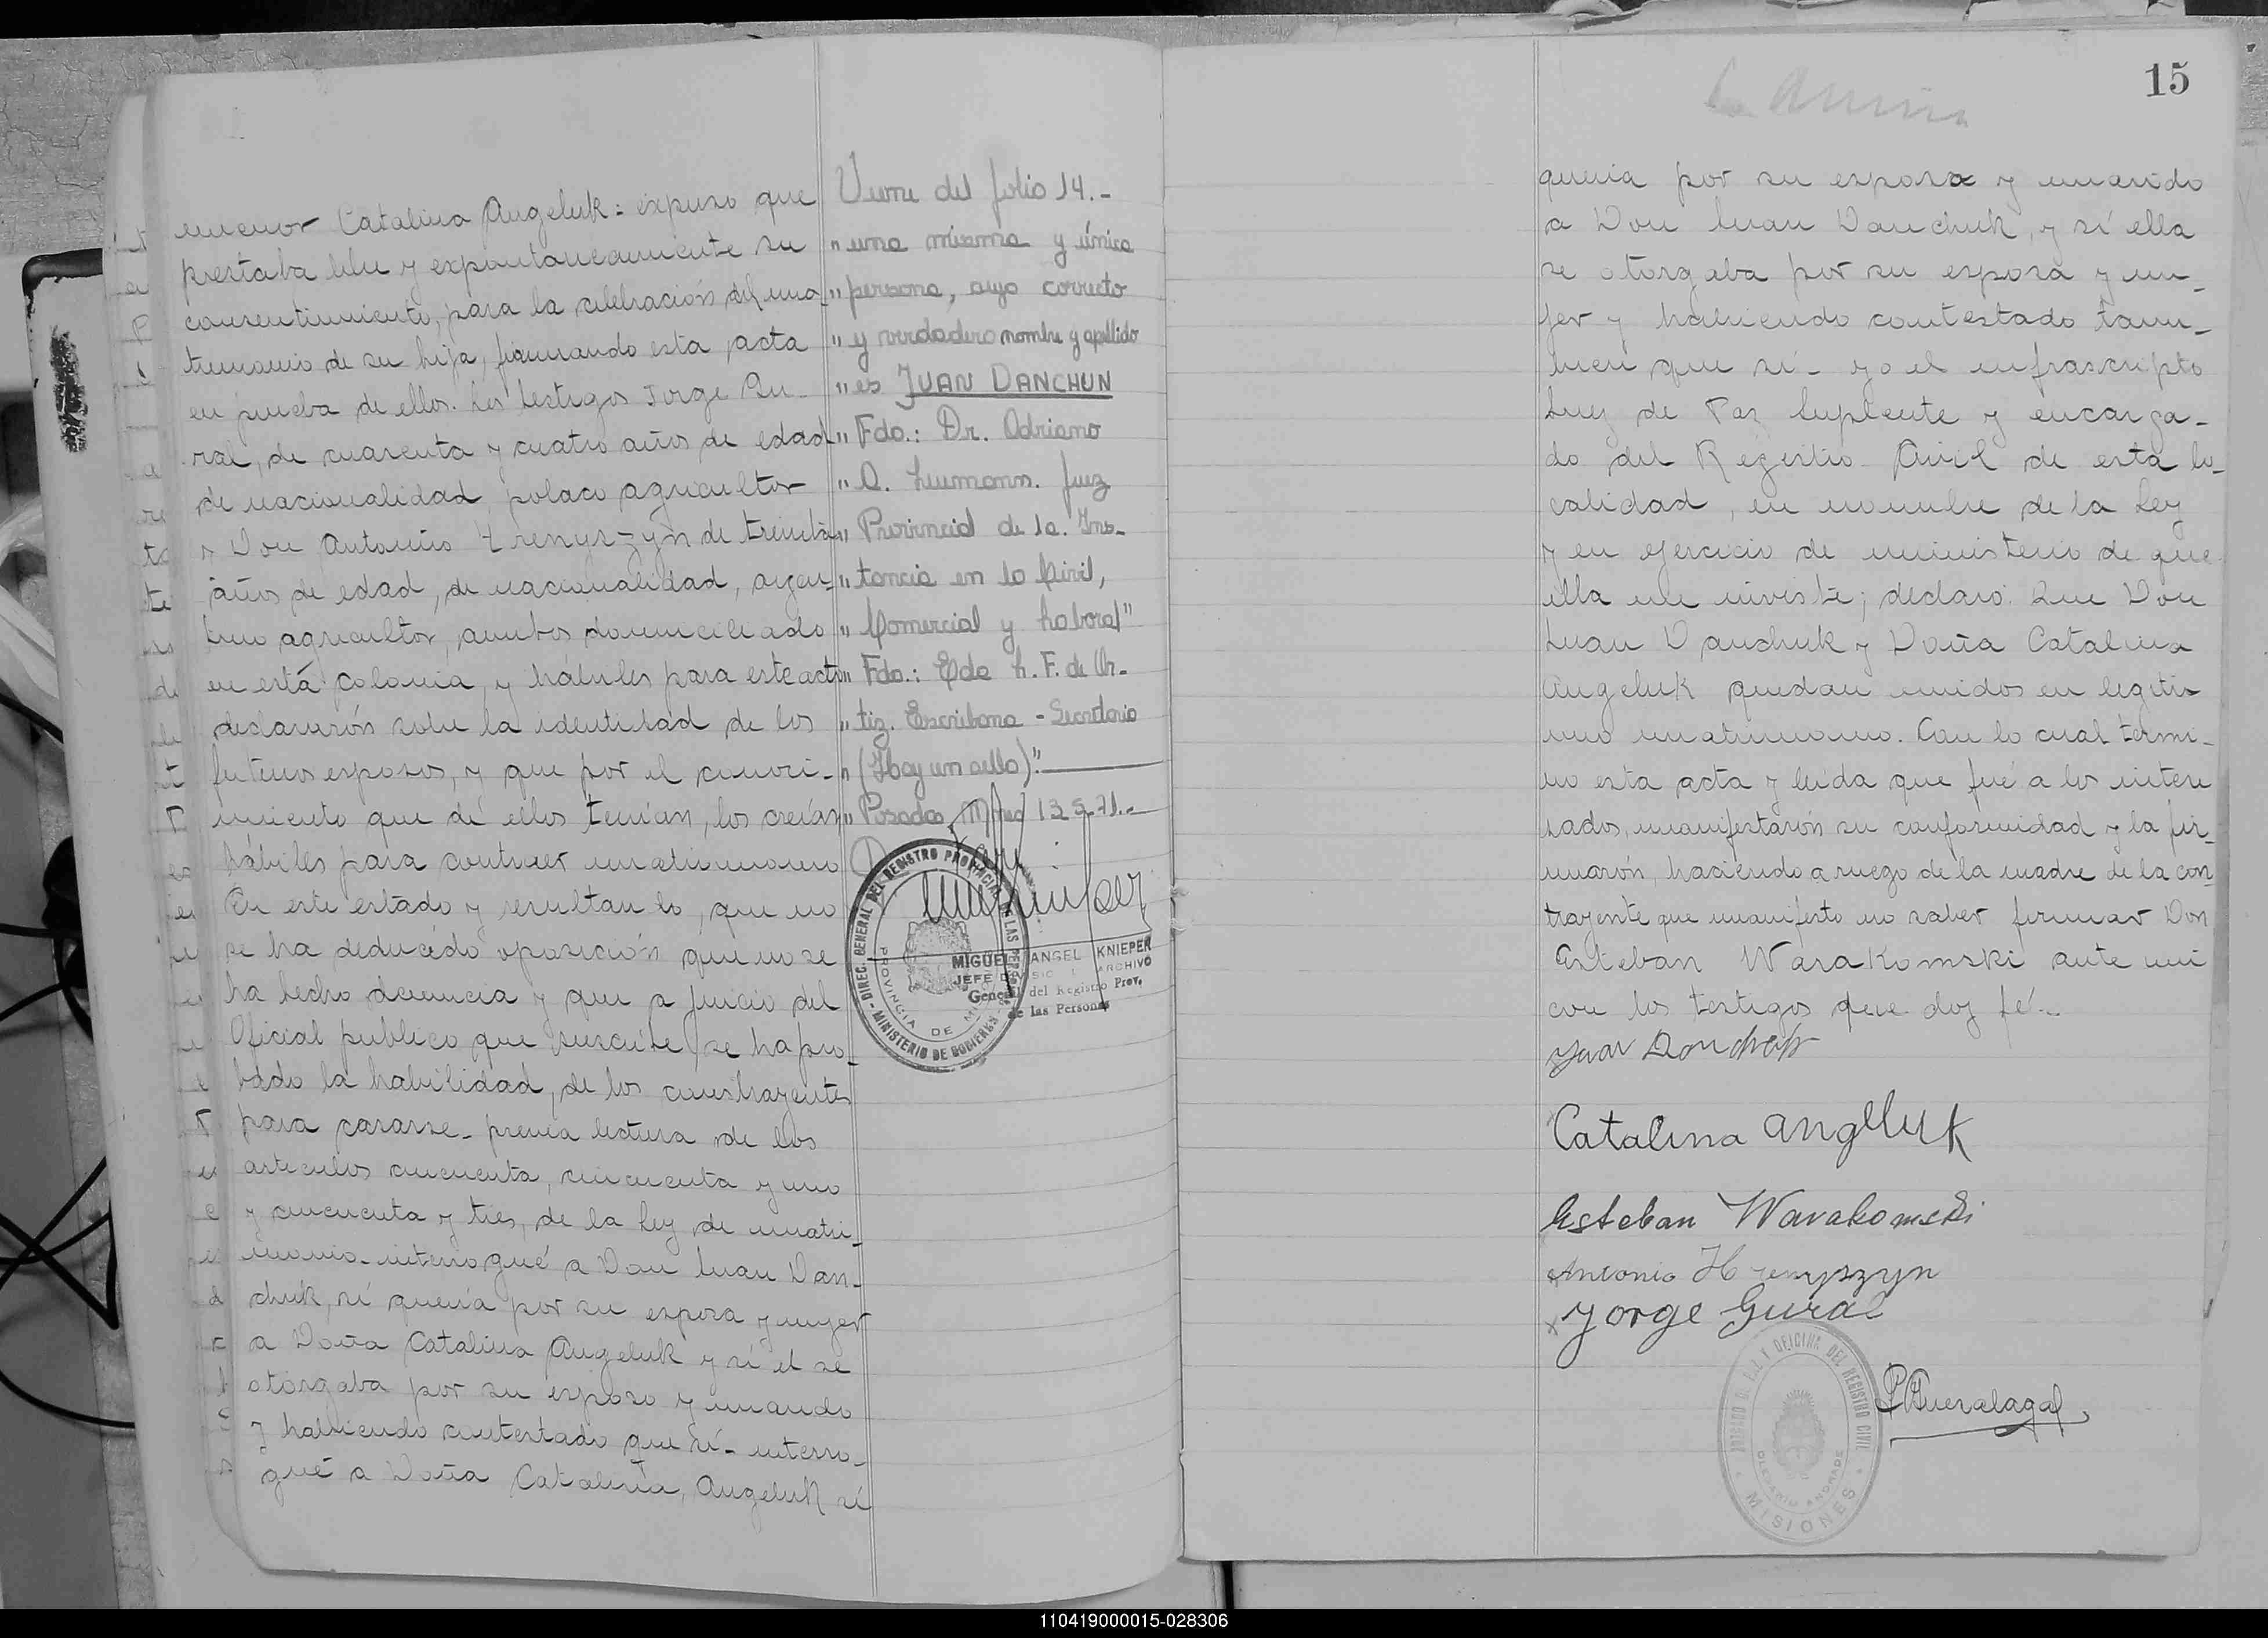 menor Catalina Angeluk: expuso que
prestaba libre y expontaneamente su
consentimiento, para la celebración del ma-
trimonio de su hija, firmando esta acta
en prueba de ellos. Los testigos Jorge Gu-
ral, de cuarenta y cuatro años de edad
de nacionalidad polaco agricultor
y Don Antonio Hrenyszyn de treinta
años de edad, de nacionalidad, argen-
tino agricultor, ambos domiciliado
en está colonia, y hábiles para este acto
declararón sobre la identidad de los
futuros esposos, y que por el conoci-
miento que dé ellos tenían, los creían
hábiles para contraer matrimonio
En este estado y resultando, que no
se ha deducido oposición que no se
ha hecho denuncia y que a juicio del
Oficial publico que suscribe se ha pro-
bado la habilidad, de los contrayentes
para casarse - previa lectura de los
articulos cincuenta, cincuenta y uno
y cincuenta y tres, de la Ley de matri-
monio - interrogué a Don Juan Dan-
chuk, sí quería por su esposa y mujer
a Doña Catalina Angeluk y sí el se
otorgaba por su esposo y marido
y habiendo contestado que sí - interro-
gué a Doña Catalina, Angeluk sí
Viene del folio 14.-
" una misma y única
" persona, cuyo correcto
" y verdadero nombre y apellido
" es JUAN DANCHUN
" Fdo.: Dr. Adriano
" A. Leumann. Juez
" Provincial de 1a. Ins-
" tancia en lo Civil,
" Comercial y Laboral"
" Fdo.: Elda L. F. de Or-
" tiz. Escribana - Secretaria
" (Hay un sello)."
" Posadas, Mnes 13.5.71.-
DIREC. GENERAL DEL REGISTRO PROVINCIAL DE LAS PERSONAS
PROVINCIA DE MISIONES
MINISTERIO DE GOBIERNO
MIGUEL ANGEL KNIEPER
JEFE DIVISION ARCHIVO
General del Registro Prov.
de las Personas
15
quería por su esposo y marido
a Don Juan Danchuk, y sí ella
se otorgaba por su esposa y mu-
jer y habiendo contestado tam-
bien que sí - yo el infrascripto
Juez de Paz Suplente y encarga-
do del Registro Civil de esta lo-
calidad, en nombre de la Ley
y en ejercicio de ministerio de que
ella me inviste; declaro: Que Don
Juan Danchuk y Doña Catalina
Angeluk quedan unidos en legiti-
mo matrimonio. Con lo cual termi-
no esta acta y leida que fué a los intere
sados, manifestarón su conformidad y la fir-
marón, haciendo a ruego de la madre de la con-
trayente que manifesto no saber firmar Don
Esteban Warakomski ante mi
con los testigos que doy fé.-
Juan Donchuk
Catalina Angeluk
Esteban Warakomski
Antonio Hrenyszyn
x Jorge Gural
JUZGADO DE PAZ Y OFICINA DEL REGISTRO CIVIL
OLEGARIO ANDRADE
MISIONES
110419000015-028306